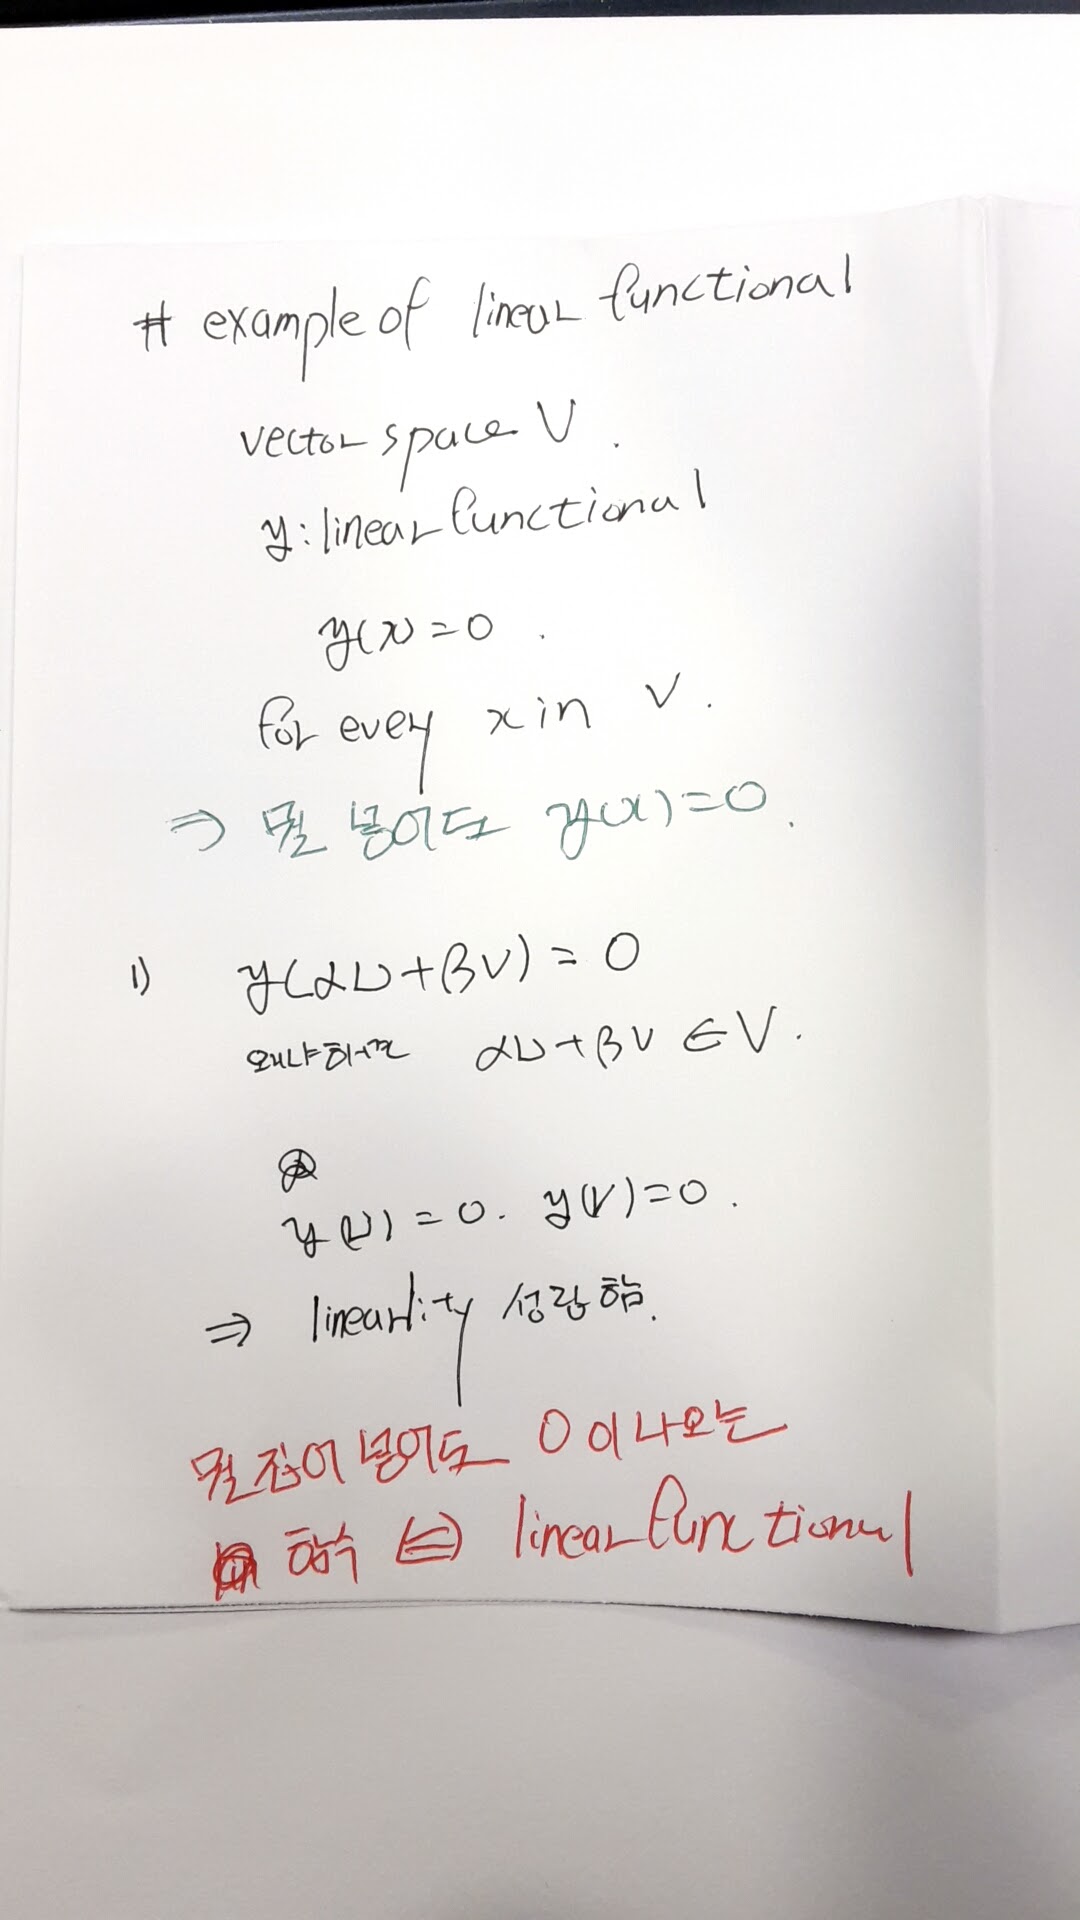 # example of linear functional
vector space V .
y : linear functional
y(x) = 0 .
for every x in V .
⇒ 뭘 넣어도 y(x) = 0 .
1) y(αu + βv) = 0
왜냐하면 αu + βv ∈ V .
y(u) = 0 . y(v) = 0 .
⇒ linearlity 성립함.
뭘 집어 넣어도 0이 나오는
함수 ⇔ linear functional